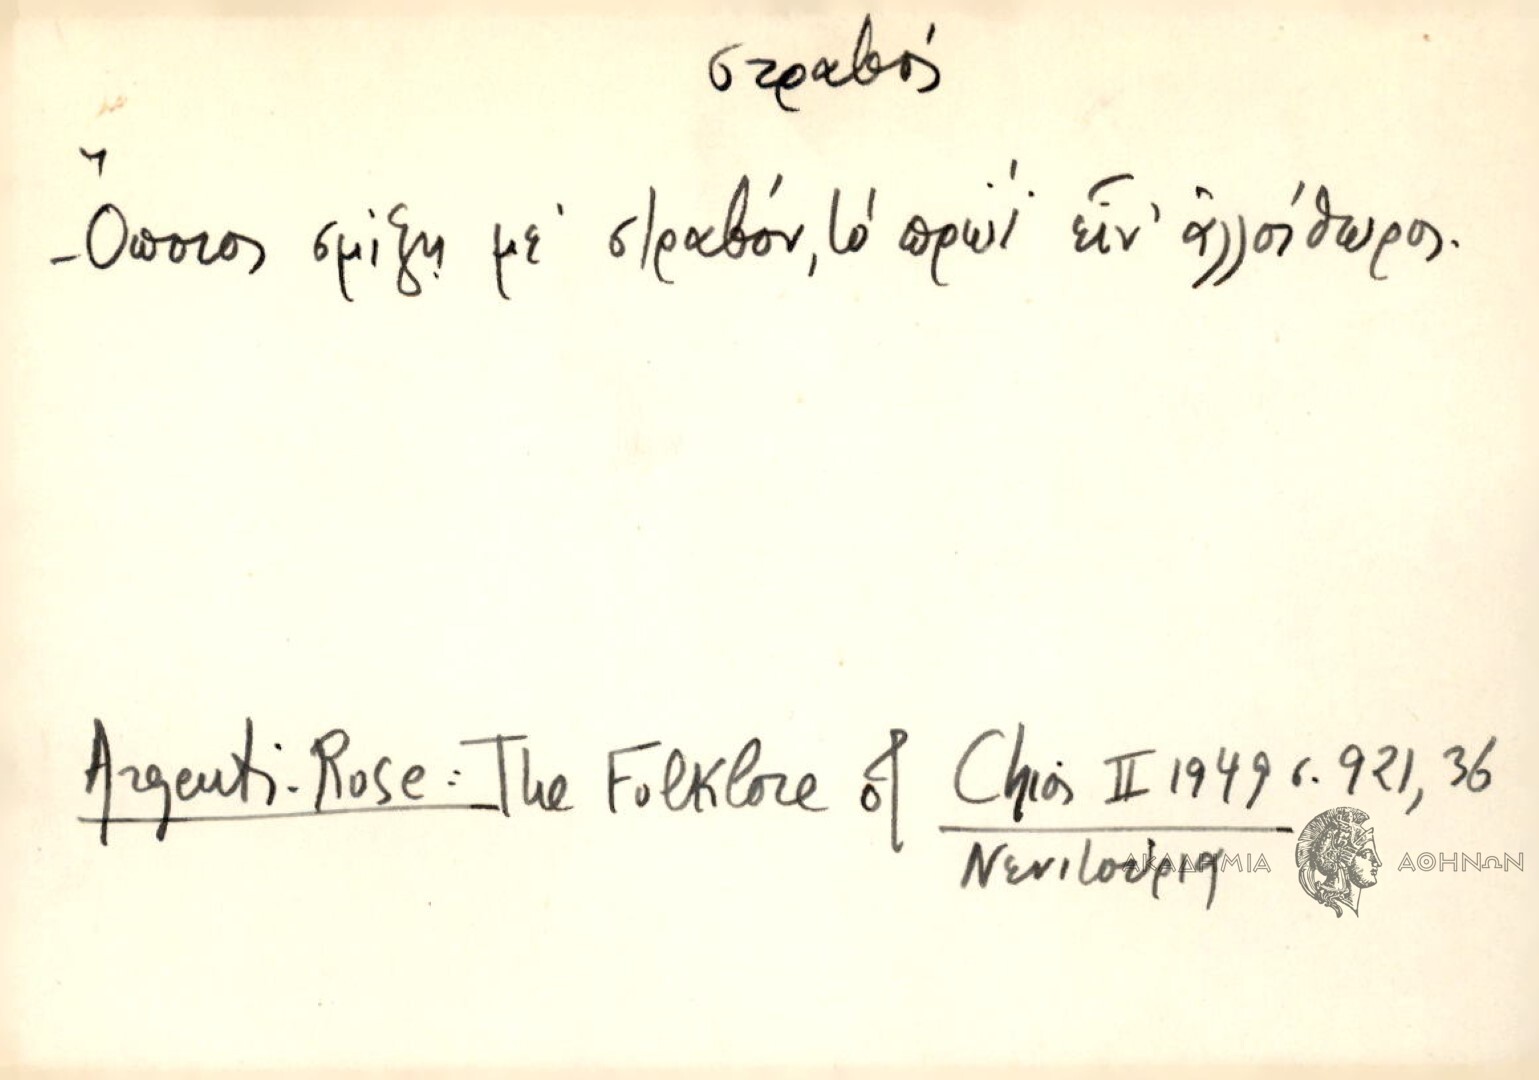 στραβός
-Ὅποιος σμίξῃ μέ στραβόν, τό πρωΐ εἶν' ἀλλοίθωρος.
Argenti-Rose: The Folklore of Chios II 1949 σ. 921, 36
Νενιτούρια
ΑΚΑΔΗΜΙΑ ΑΘΗΝΩΝ